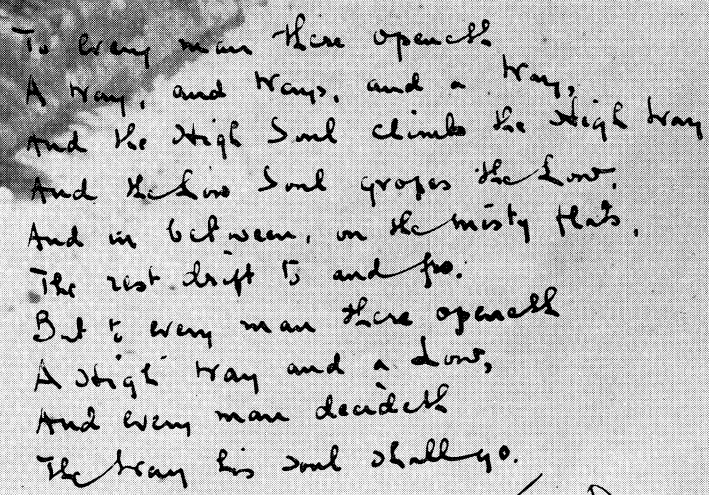 To every man there openeth
A Way, and Ways, and a Way,
And the High Soul climbs the High Way
And the Low Soul gropes the Low,
And in between, on the misty flats,
The rest drift to and fro.
But to every man there openeth
A High Way and a Low,
And every man decideth
The Way his soul shall go.